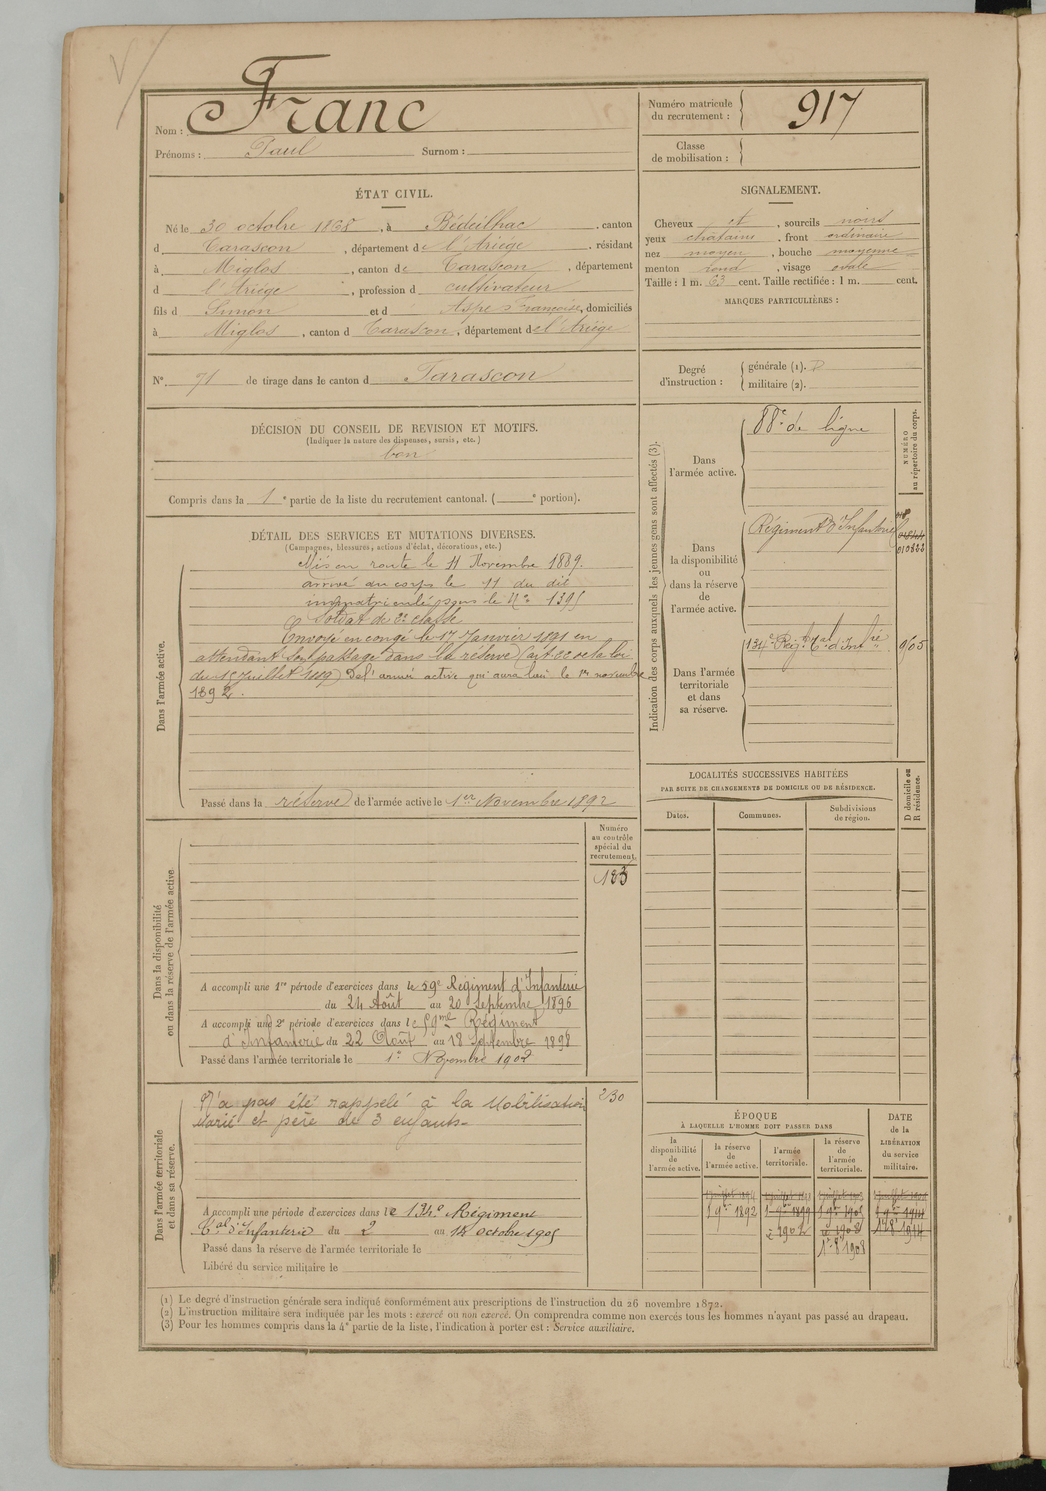 Nom : Franc
Prénoms : Paul Surnom :
Numéro matricule
du recrutement :
917
Classe
de mobilisation :
ÉTAT CIVIL.
Né le 30 octobre 1868, à Bédeilhac, canton
d Tarascon, département de l'Ariège, résidant
à Miglos, canton de Tarascon, département
d l'Ariège, profession d cultivateur
fils d Simon et d Aspe Françoise, domiciliés
à Miglos, canton d Tarascon, département de l'Ariège
N° 71 de tirage dans le canton d Tarascon
SIGNALEMENT.
Cheveux et, sourcils noirs
yeux chatains, front ordinaire
nez moyen, bouche moyenne
menton rond, visage ovale
Taille : 1 m. 63 cent. Taille rectifiée : 1 m. cent.
MARQUES PARTICULIÈRES :
Degré
d'instruction :
générale (1).
militaire (2).
DÉCISION DU CONSEIL DE REVISION ET MOTIFS.
(Indiquer la nature des dispenses, sursis, etc.)
bon
Compris dans la 1e partie de la liste du recrutement cantonal. ( e portion).
DÉTAIL DES SERVICES ET MUTATIONS DIVERSES.
(Campagnes, blessures, actions d'éclat, décorations, etc.)
Dans l'armée active.
Mis en route le 11 Novembre 1889.
arrivé au corps le 11 du dit
immatriculé sous le N° 1395
Soldat de 2e classe
Envoyé en congé le 17 Janvier 1891 en
attendant son passage dans la réserve (art de la loi
du 15 Juillet 1889) De l'armée active qui aura lieu le 1er novembre
1892.
Passé dans la réserve de l'armée active le 1er Novembre 1892
Indication des corps auxquels les jeunes gens sont affectés (3).
Dans
l'armée active.
88e de ligne
NUMÉRO
au répertoire du corps.
Dans
la disponibilité
ou
dans la réserve
de
l'armée active.
Régiment d'Infanterie
010822
Dans l'armée
territoriale
et dans
sa réserve.
134e Régt tal d'Infrie
9/05
LOCALITÉS SUCCESSIVES HABITÉES
PAR SUITE DE CHANGEMENTS DE DOMICILE OU DE RÉSIDENCE.
Dates.
Communes.
Subdivisions
de région.
D domicile ou
R résidence.
Dans la disponibilité
ou dans la réserve de l'armée active
Numéro
au contrôle
spécial du
recrutement.
183
A accompli une 1re période d'exercices dans le 59e Régiment d'Infanterie
du 24 Août au 20 Septembre 1896
A accompli une 2e période d'exercices dans le 59me Régiment
d'Infanterie du 22 Août au 18 Septembre 1898
Passé dans l'armée territoriale le 1er Novembre 1902
Dans l'armée territoriale
et dans sa réserve.
230
N'a pas été rappelé à la Mobilisation
Marié et père de 3 enfants
A accompli une période d'exercices dans le 134e Régiment
tal d'Infanterie du 2 au 14 octobre 1905
Passé dans la réserve de l'armée territoriale le
Libéré du service militaire le
ÉPOQUE
À LAQUELLE L'HOMME DOIT PASSER DANS
la
disponibilité
de
l'armée active.
la réserve
de
l'armée active.
l'armée
territoriale.
la réserve
de
l'armée
territoriale.
DATE
de la
LIBÉRATION
du service
militaire.
1 9bre 1892
1 9bre 1899
1 9bre 1905
1902
1908
1914
(1) Le degré d'instruction générale sera indiqué conformément aux prescriptions de l'instruction du 26 novembre 1872.
(2) L'instruction militaire sera indiquée par les mots : exercé ou non exercé. On comprendra comme non exercés tous les hommes n'ayant pas passé au drapeau.
(3) Pour les hommes compris dans la 4e partie de la liste, l'indication à porter est : Service auxiliaire.